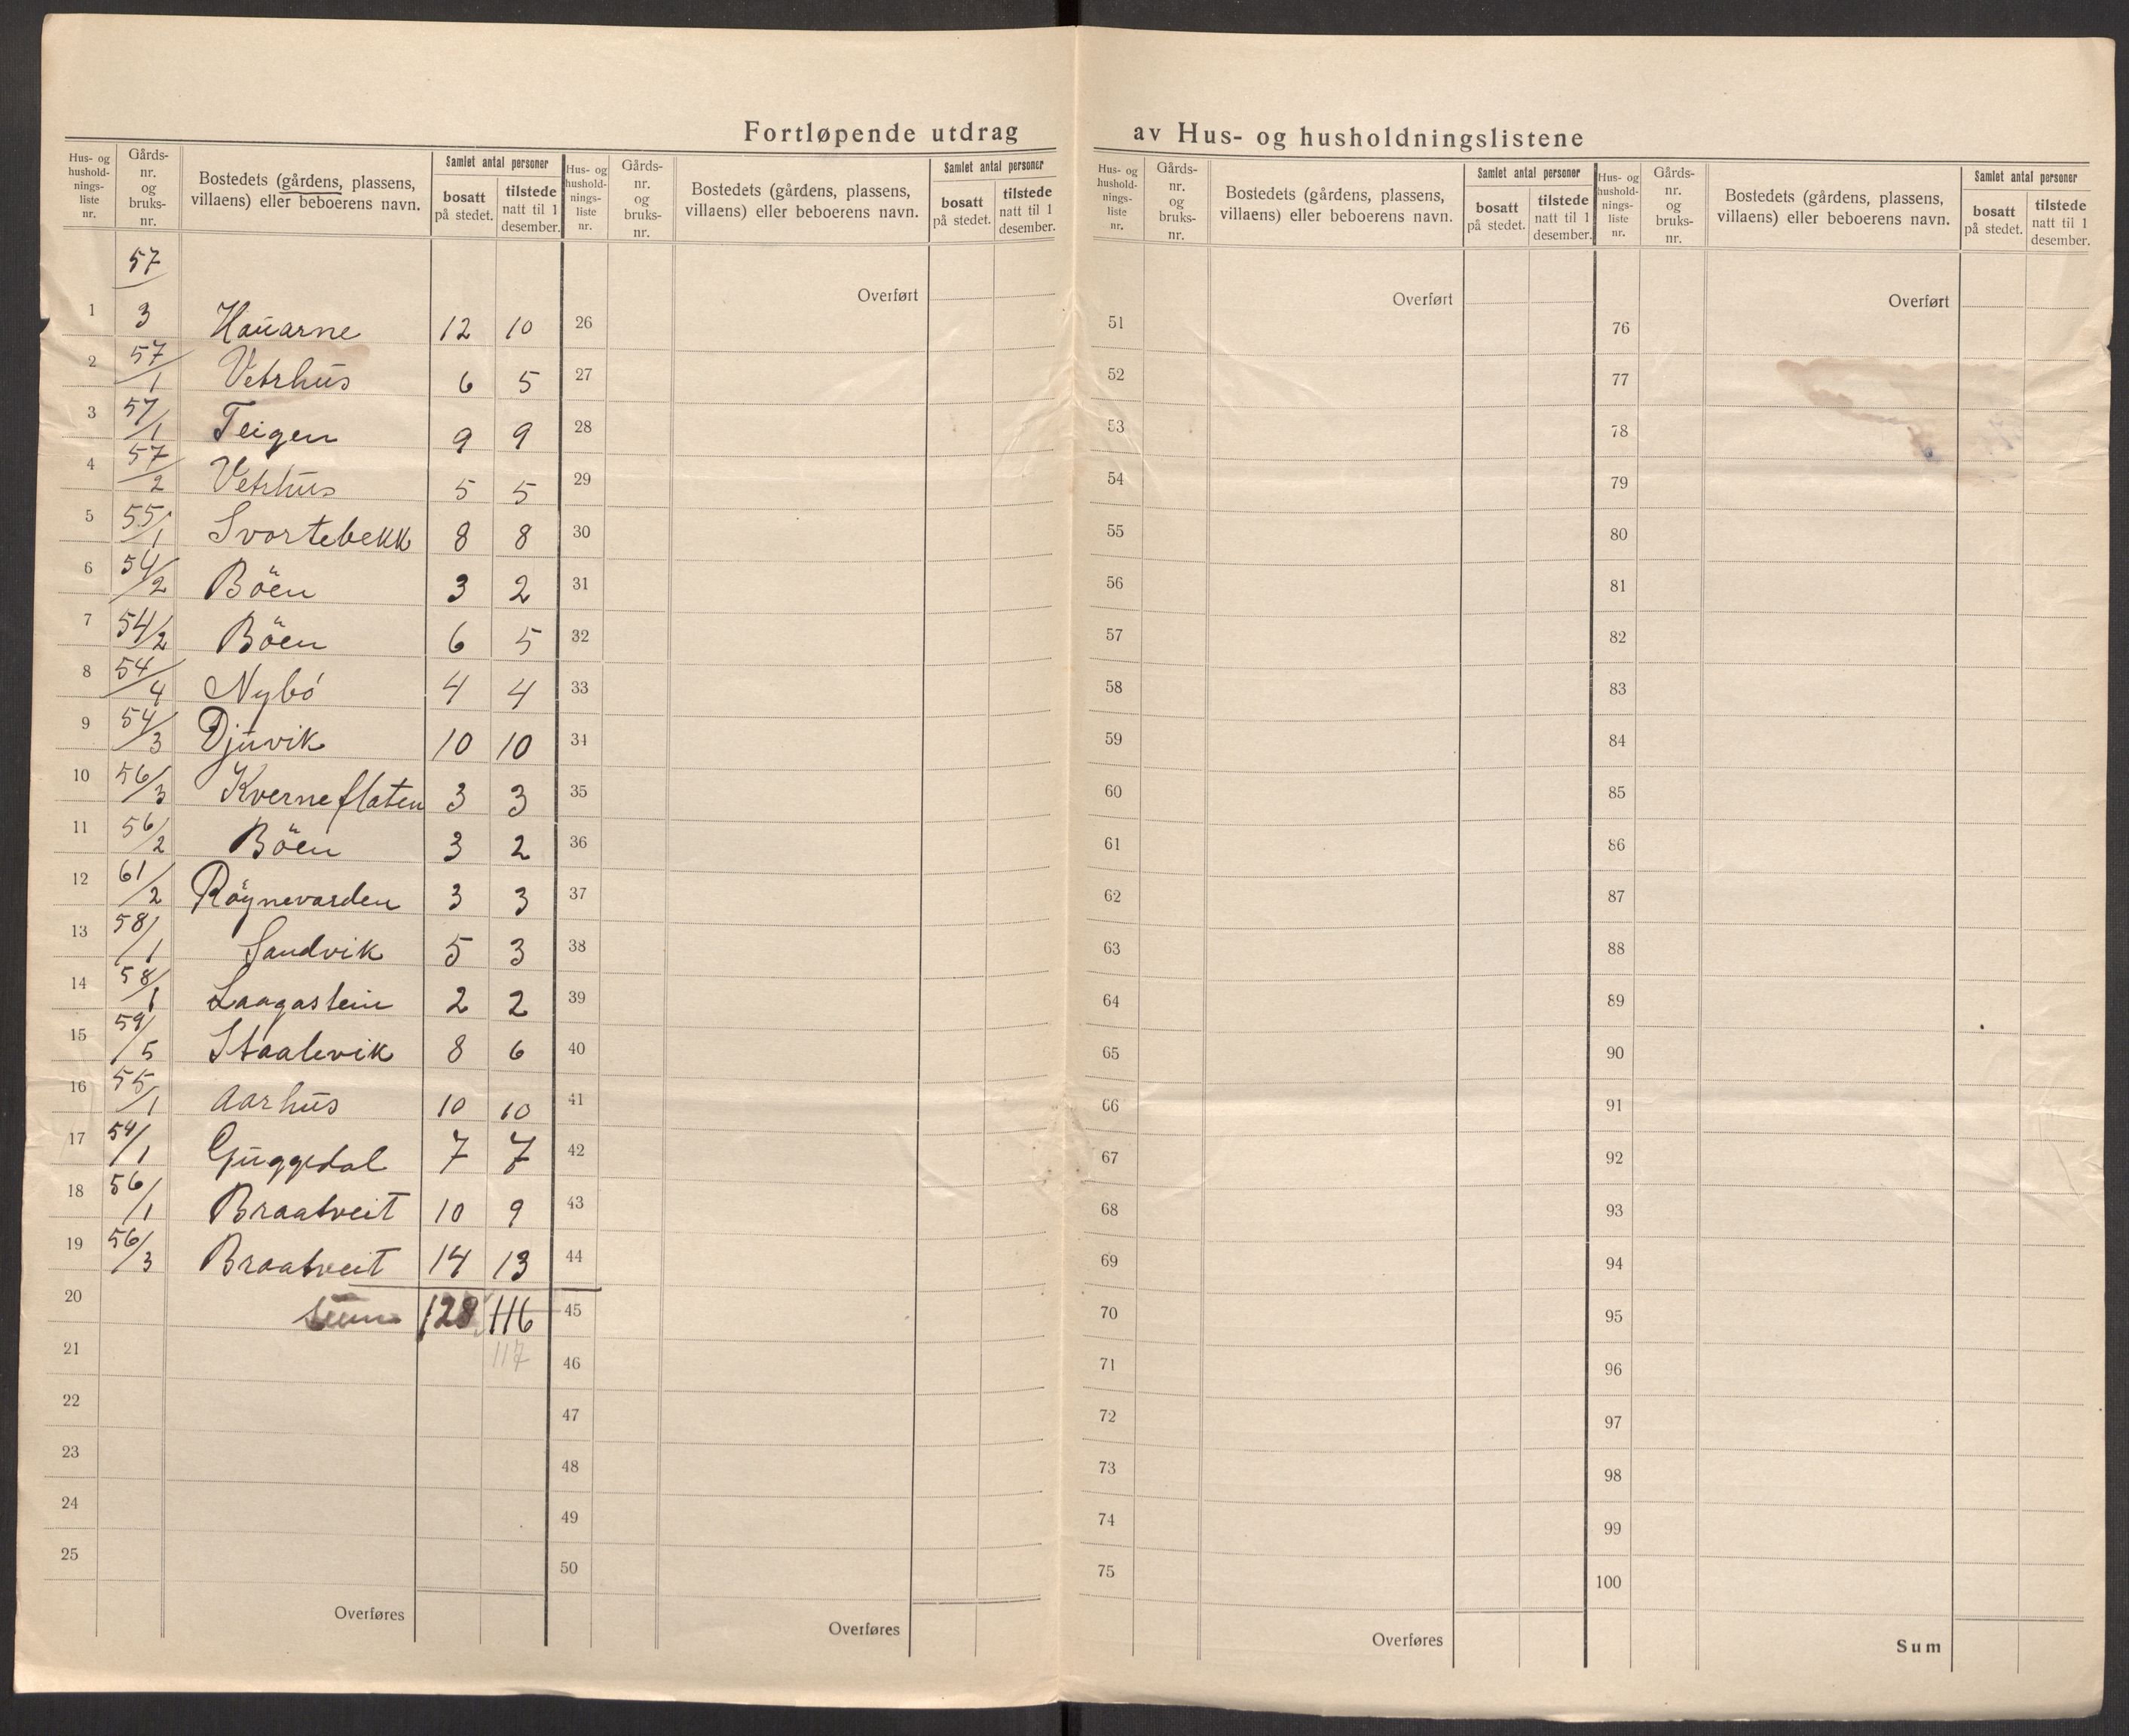 Fortløpende utdrag av Hus- og husholdningslistene
Hus- og hushold- nings- liste nr. | Gårds- nr. og bruks- nr. | Bostedets (gårdens, plassens, villaens) eller beboerens navn. | Samlet antal personer | bosatt på stedet. | tilstede natt til 1 desember.
1 57/3 Hauarne 12 10
2 57/1 Vetrhus 6 5
3 57/1 Teigen 9 9
4 57/2 Vetrhus 5 5
5 55/1 Svortebekk 8 8
6 54/2 Böen 3 2
7 54/2 Böen 6 5
8 54/4 Nybö 4 4
9 54/3 Djuvik 10 10
10 56/3 Kverneflaten 3 3
11 56/2 Böen 3 2
12 61/2 Röynevarden 3 3
13 58/1 Sandvik 5 3
14 58/1 Laagastein 2 2
15 59/5 Staalevik 8 6
16 55/1 Aarhus 10 10
17 54/1 Guggedal 7 7
18 56/1 Braatveit 10 9
19 56/3 Braatveit 14 13
20 Sum 128 116
21 117
22
23
24
25
Overføres
Hus- og hushold- nings- liste nr. | Gårds- nr. og bruks- nr. | Bostedets (gårdens, plassens, villaens) eller beboerens navn. | Samlet antal personer | bosatt på stedet. | tilstede natt til 1 desember.
Overført
26
27
28
29
30
31
32
33
34
35
36
37
38
39
40
41
42
43
44
45
46
47
48
49
50
Overføres
Hus- og hushold- nings- liste nr. | Gårds- nr. og bruks- nr. | Bostedets (gårdens, plassens, villaens) eller beboerens navn. | Samlet antal personer | bosatt på stedet. | tilstede natt til 1 desember.
Overført
51
52
53
54
55
56
57
58
59
60
61
62
63
64
65
66
67
68
69
70
71
72
73
74
75
Overføres
Hus- og hushold- nings- liste nr. | Gårds- nr. og bruks- nr. | Bostedets (gårdens, plassens, villaens) eller beboerens navn. | Samlet antal personer | bosatt på stedet. | tilstede natt til 1 desember.
Overført
76
77
78
79
80
81
82
83
84
85
86
87
88
89
90
91
92
93
94
95
96
97
98
99
100
Sum